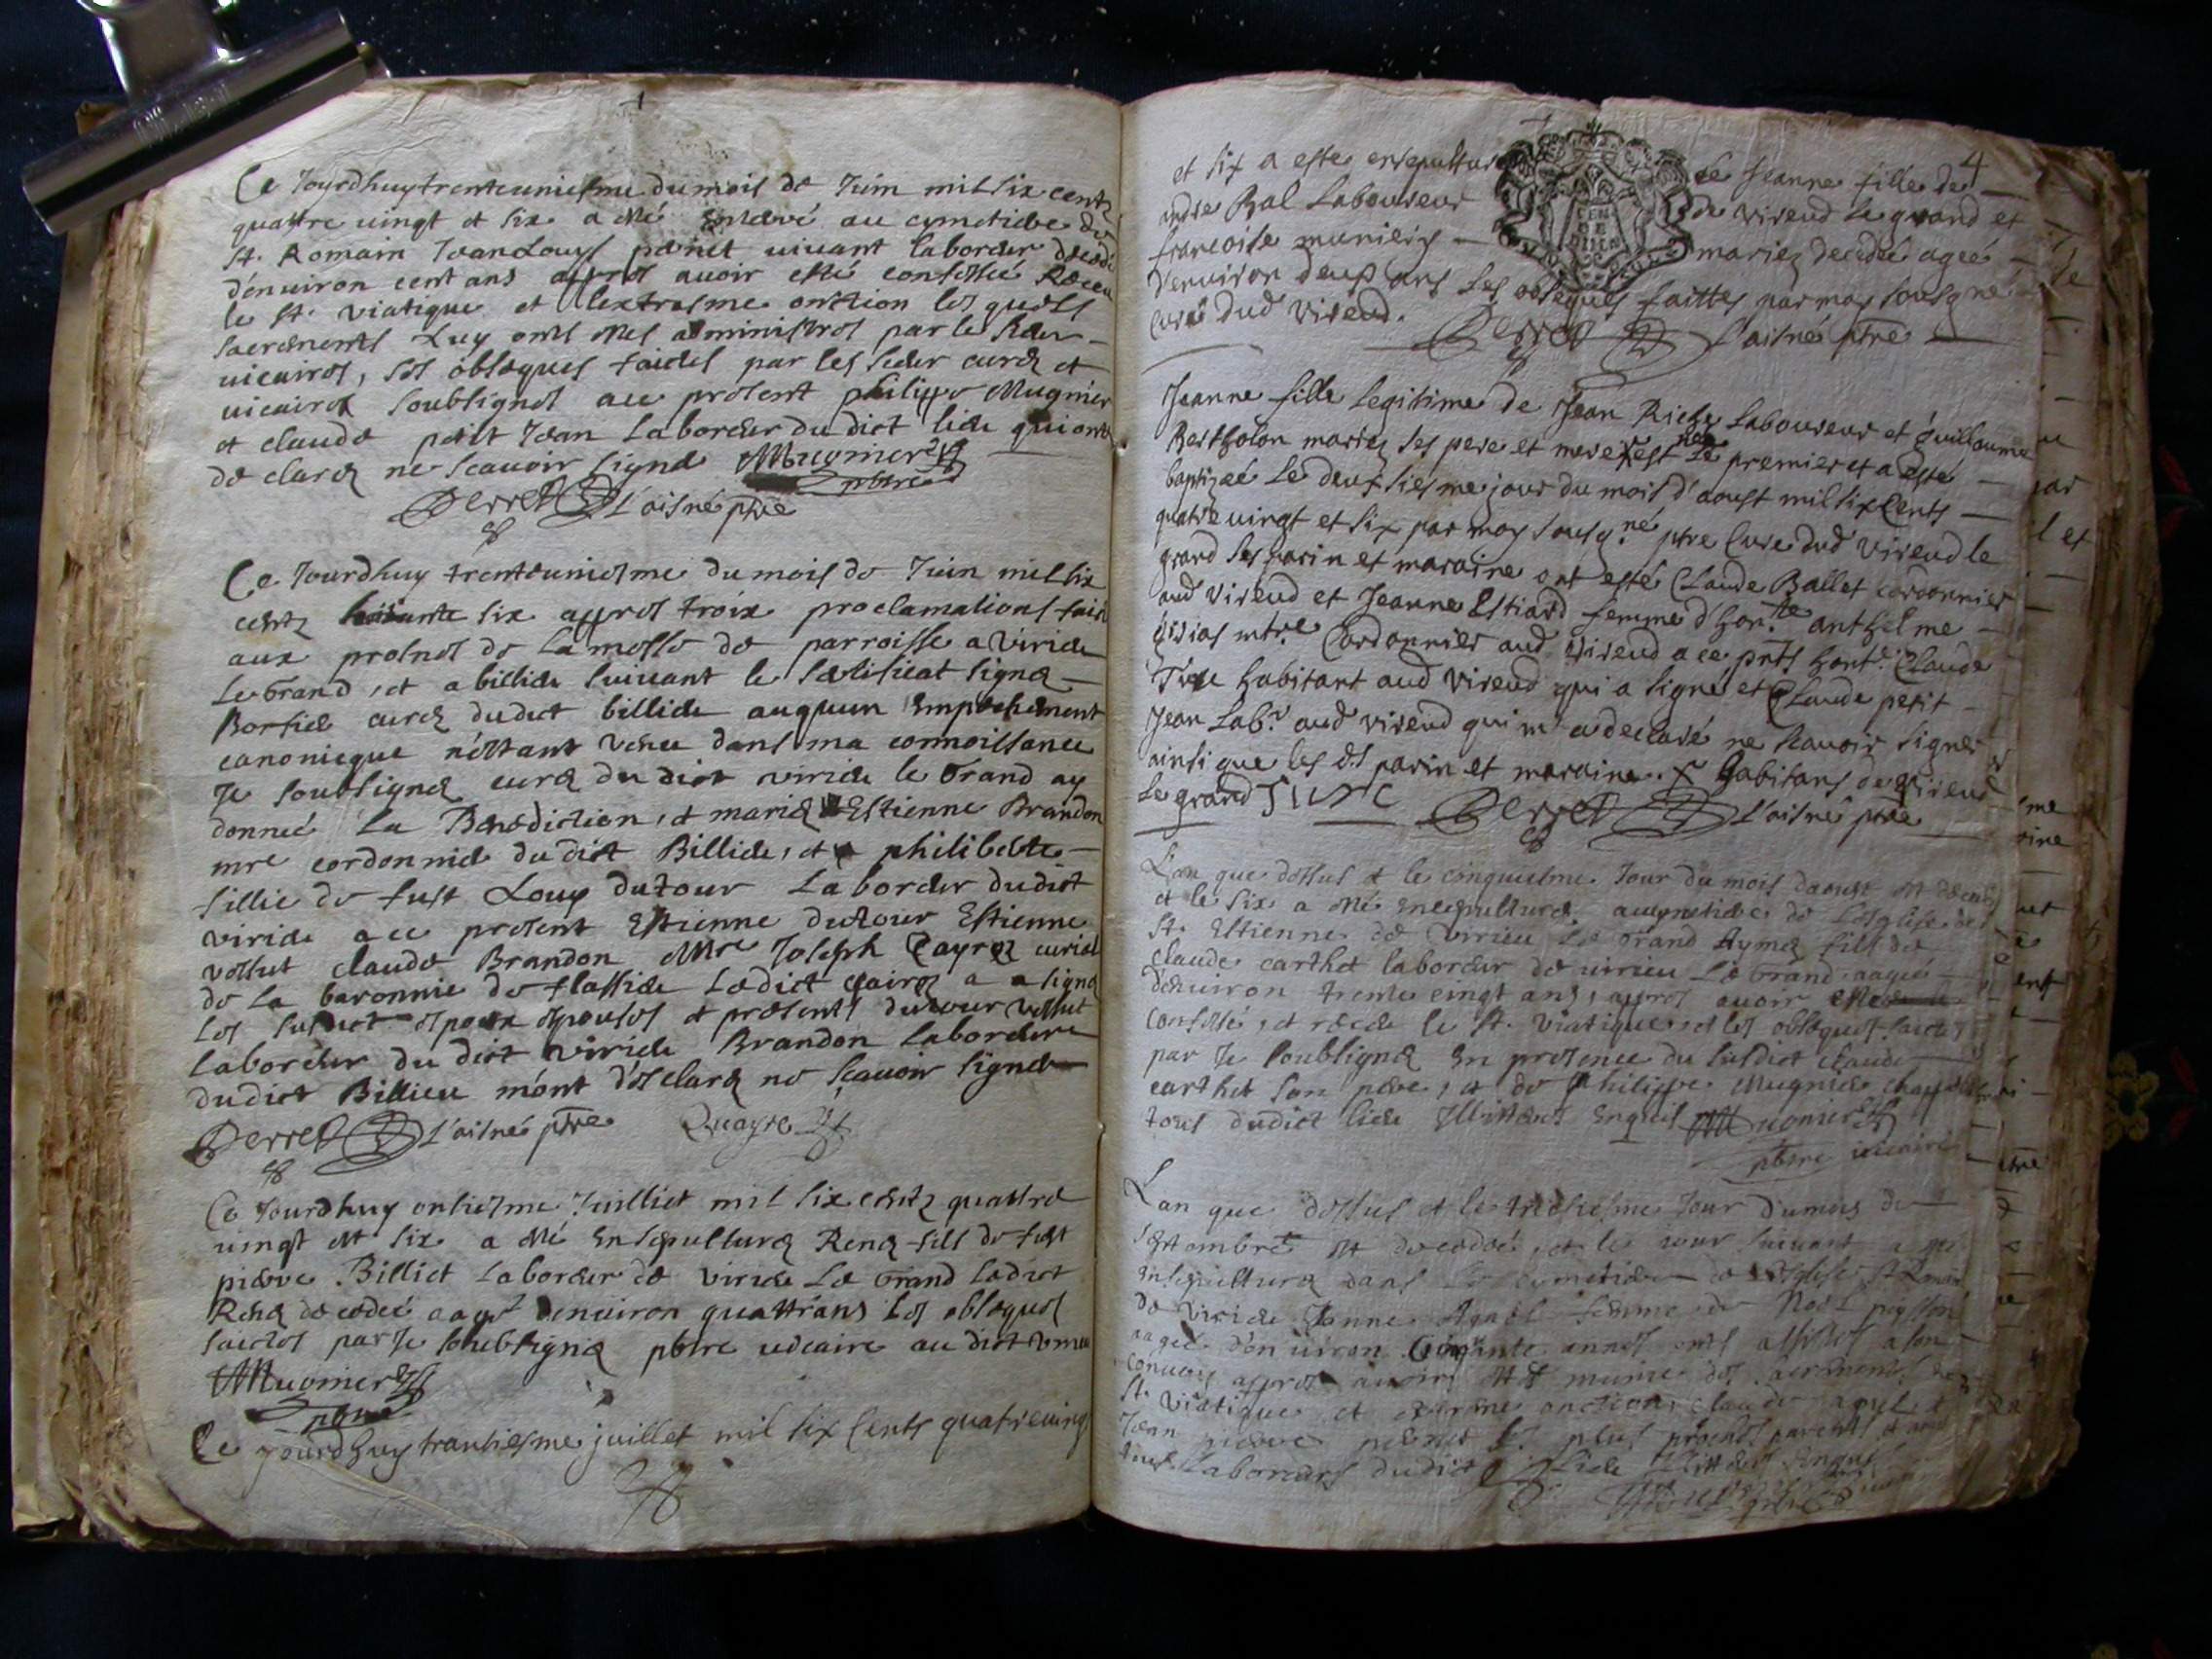 Ce Jourdhuy trenteuniesme du mois de Juin mil six centz
quattre uingt et six a esté enterré au cymetiere de
St. Romain Jean Louys pernet uiuant laboreur decedé
d'enuiron cent ans appres auoir esté confessé Receu
le St. viatique et l'extresme onction les quels
sacrements Luy onts estes administres par le sieur
uicaires, ses obseques faictes par les sieur curé et
uicaires soubsignes au present philippe Mugnier
et claude petit Jean Laboreur du dict lieu qui ont
declaré ne scauoir signé Mugnier
Perret L'aisné ptre pbtre
Ce Jourdhuy trenteuniesme du mois de Juin mil six
centz six appres troix proclamations faict
aux prosnes de La messe de parroisse a Virieu
Le Grand, et a billieu suiuant le certificat signé
curé dudict billieu auquun Empechement
canonicque n'estant venu dans ma connoissance
Je soubsigné curé du dict virieu le Grand ay
donneé La Benediction, et marié Estienne Brandon
mre cordonnier du dict Billieu, et philiberte
fillie de fust Louy dutour Laboreur dudict
virieu a ce present Estienne dutour Estienne
vettut claude Brandon Mre Joseph Cayre curial
de La baronnie de flassieu Ledict a signé
Les susdict espoux espouses et presents dutour vettut
Laboreur du dict virieu Brandon Laboreur
dudict Billieu m'ont desclaré ne scauoir signé
Perret L'aisné ptre Quayre
Ce Jourdhuy onsiesme Juilliet mil six centz quattre
uingt et six a esté Ensepulturé René fils de fust
pierre Billiet Laboreur de virieu Le Grand Ledict
René decedeé aagé d'enuiron quattr'ans Les obseques
faictes par Je soubsigné pbtre uicaire au dict
Mugnier
pbtre
Ce Jourdhuy trantiesme juillet mil six Cents quatreuingt
4
et six a esté ensepulturé Jeanne fille de
andre Bal Laboureur de Virieud Le grand et
francoise munier mariez decedée ageé
d'enuiron deux ans Les obseques faittes par moy sousigné
Curé dud Virieud. Perret L'aisné ptre
Jeanne fille Legitime de Jean Riche Laboureur et guillaume
Bertholon mariez ses pere et mere x est née Le premier et a esté
baptizeé Le deuxsiesme jour du mois d'aoust mil six Cents
quatre uingt et six par moy sousig.né ptre Curé dud Virieud le
grand ses parin et maraine ont esté Claude Ballet cordonnier
aud Virieud et Jeanne Estiard femme d'hon.ble anthelme
mtre Cordonnier aud Virieud a ce pnts hont.e Claude
habitant aud Virieud qui a signé et Claude petit
Jean Lab.r aud Virieud qui m'a declaré ne scauoir signer
ainsi que les ds parin et maraine. x habitans de Virieud
Le grand Perret L'aisné ptre
L'an que dessus et le cinquiesme Jour du mois daoust est decedé
et le six a esté ensepulturé au cymetiere de L'esglise de
St. Estienne de Virieu Le Grand Aymé fils de
claude carthet laboreur de uirieu Le Grand aagé
d'enuiron trente cingt ans, appres auoir esté
confessé, et receu le St. Viatique, et les obseques faictes
par Je soubsigné En presence du susdict claude
carthet son pere, et de philippe Mugnier
tous dudict lieu Mugnier
pbtre uicaire
L'an que dessus et le Jour du mois de
septembre est decedeé, et le jour suiuant a esté
ensepulturé dans Le cymetiere de L'esglise St Romain
de virieu Janne femme de Noel
aageé d'enuiron annes onts assistes a son
conuoy appres auoir esté munie des sacrements de
St. Viatique et extresme onction claude
Jean pierre pernet plus proches parents
tous Laboreurs dudict Lieu